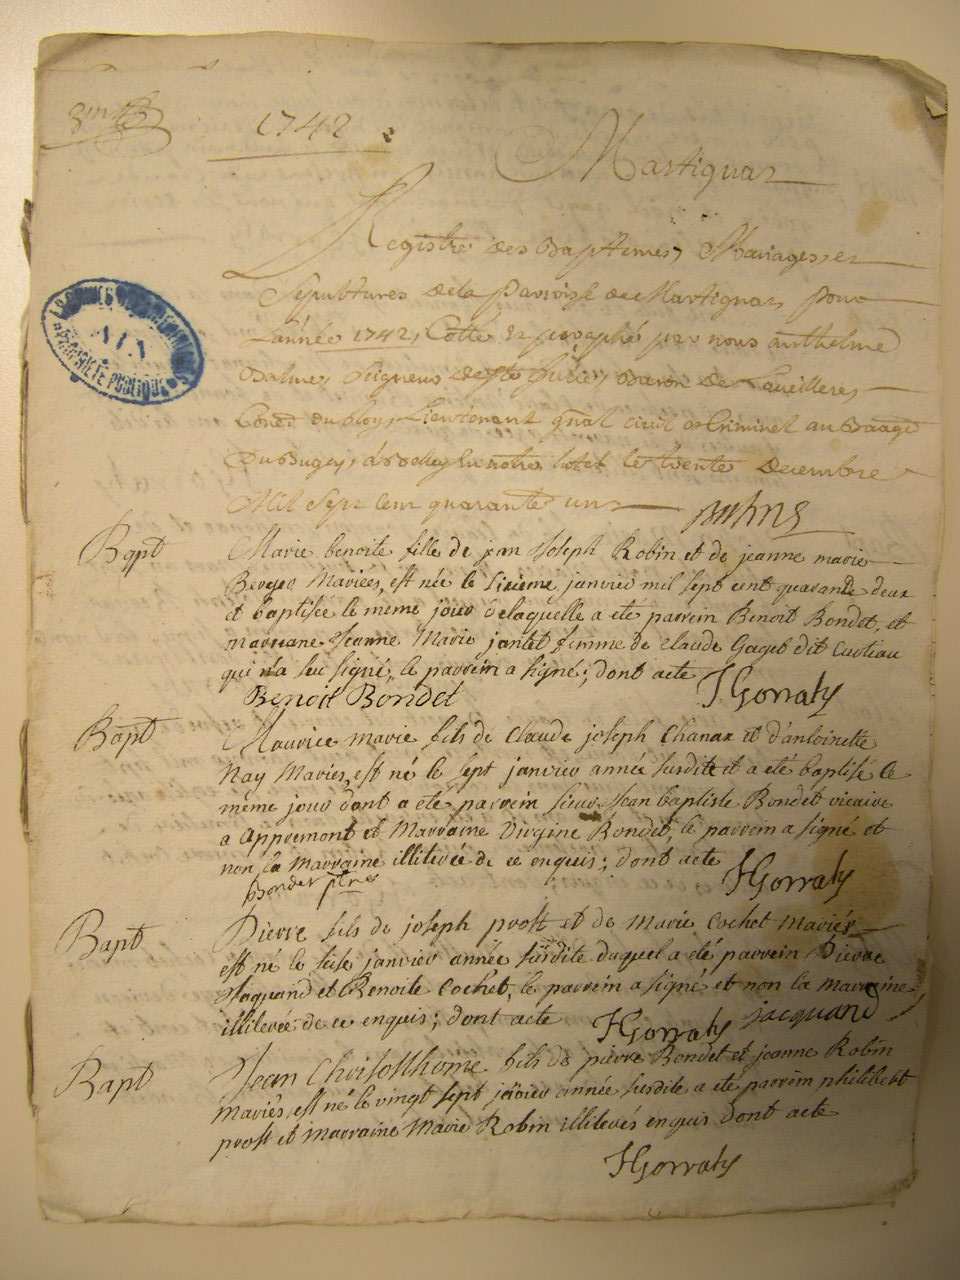 1742
Martignat
Registre des Baptemes, Mariages, et
Sepultures de la parroisse de Martignat, pour
L'année 1742, Cotté et paraphé par nous anthelme
Balme, Seigneur de Ste Julie, Baron de
Cons.er du Roy, Lieutenant gñal civil et Criminel au Baage
Du Bugey, en notre hotel le trente decembre
Mil sept cent quarante un
Bapt
Marie benoite fille de jean Joseph Robin et de jeanne marie
Mariées, est née le sixieme janvier mil sept cent quarante deux
et baptisée le meme jour de laquelle a eté parrein Benoit Bondet, et
marraine Jeanne Marie jantet femme de Claude Gaget dit
qui n'a seu signé, le parrein a signé; dont acte
Benoit Bondet JGorraty
Bapt
Maurice marie fils de Claude joseph Chanax et d'antoinette
Nay Mariés, est né le sept janvier année susdite et a eté baptisé le
même jour dont a eté parrein sieur Jean baptiste Bondet vicaire
a Appremont et Marraine Virgine Bondet, le parrein a signé et
non la Marraine illiterée de ce enquis; dont acte
Bondet ptre JGorraty
Bapt
Pierre fils de joseph prost et de Marie Cochet Mariés
est né le seise janvier année susdite duquel a eté parrein Pierre
Jaquand et Benoite Cochet, le parrein a signé et non la Marraine
illiterée de ce enquis; dont acte JGorraty jacquand
Bapt
Jean Chrisosthome fils de pierre Bondet et jeanne Robin
Mariés, est né le vingt sept janvier année susdite a eté parrein philibert
prost et marraine Marie Robin illiterés enquis dont acte
JGorraty
AIN
PROPRIÉTÉ PUBLIQUE